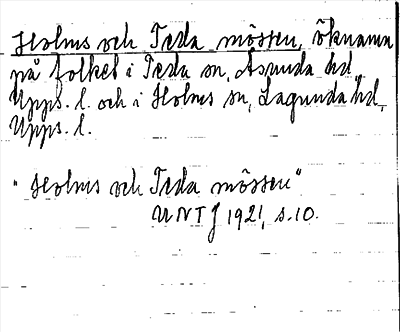 Holms och Teda mössen, öknamn
på folket i Teda sn, Åsunda hd,
Upps. l. och i Holms sn, Lagunda hd,
Upps. l.
"Holms och Teda mössen"
UNTJ 1921, s. 10.